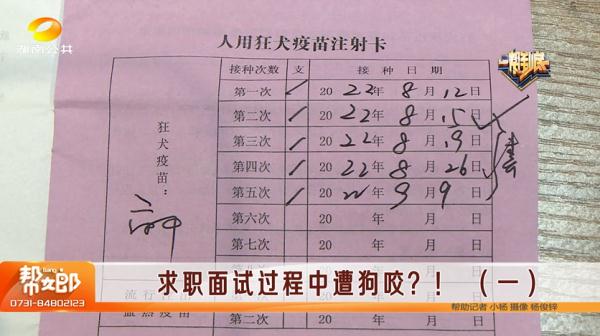 湖南公共
帮到底
人用狂犬疫苗注射卡
接种次数 支 接种日期
狂犬疫苗：
第一次 2022年8月12日
第二次 2022年8月15日
第三次 2022年8月19日
第四次 2022年8月26日
第五次 2022年9月9日
第六次 20 年 月 日
第七次 20 年 月 日
第二次 20 年 月 日
帮女郎
bang
0731-84802123
求职面试过程中遭狗咬？！（一）
帮助记者 小杨 摄像 杨俊锌